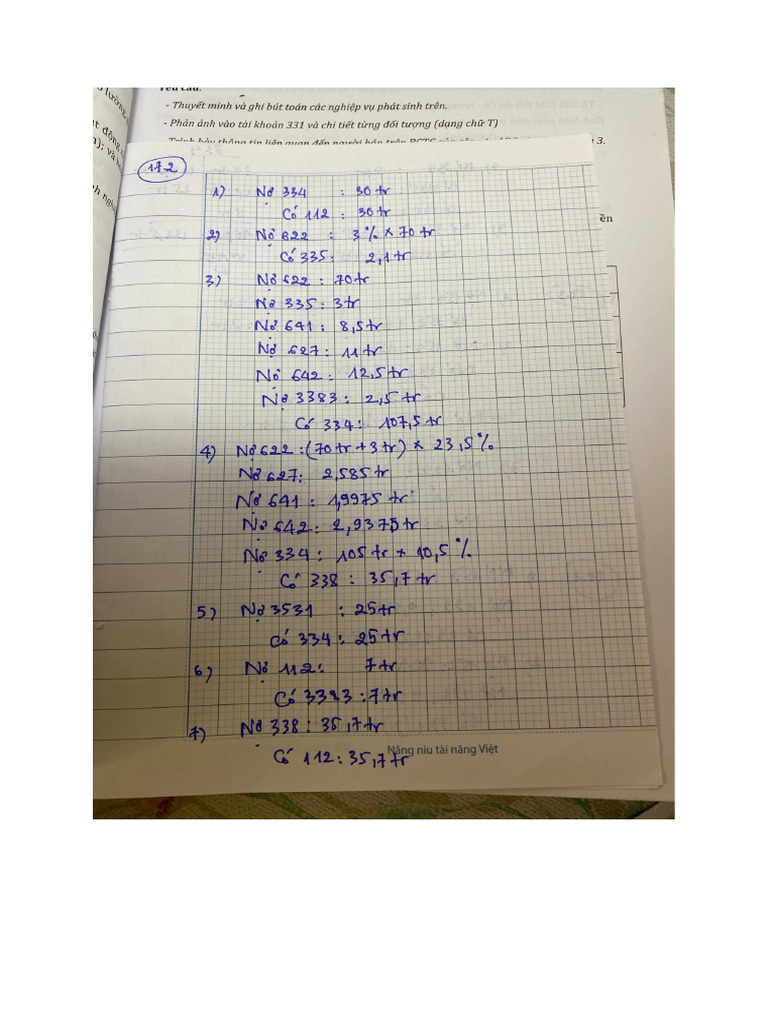 Yêu cầu:
- Thuyết minh và ghi bút toán các nghiệp vụ phát sinh trên.
- Phản ánh vào tài khoản 331 và chi tiết từng đối tượng (dạng chữ T)
17.2
1) Nợ 334 : 30 tr
Có 112 : 30 tr
2) Nợ 622 : 3% x 70 tr
Có 335: 2,1 tr
3) Nợ 622 : 70 tr
Nợ 335 : 3 tr
Nợ 641 : 8,5 tr
Nợ 627 : 11 tr
Nợ 642 : 12,5 tr
Nợ 3383 : 2,5 tr
Có 334 : 107,5 tr
4) Nợ 622 : (70 tr + 3 tr) x 23,5%
Nợ 627: 2,585 tr
Nợ 641 : 1,9975 tr
Nợ 642 : 2,9375 tr
Nợ 334 : 105 tr x 10,5%
Có 338 : 35,7 tr
5) Nợ 3531 : 25 tr
Có 334 : 25 tr
6) Nợ 112 : 7 tr
Có 3383 : 7 tr
7) Nợ 338 : 35,7 tr
Có 112 : 35,7 tr
Nâng niu tài năng Việt